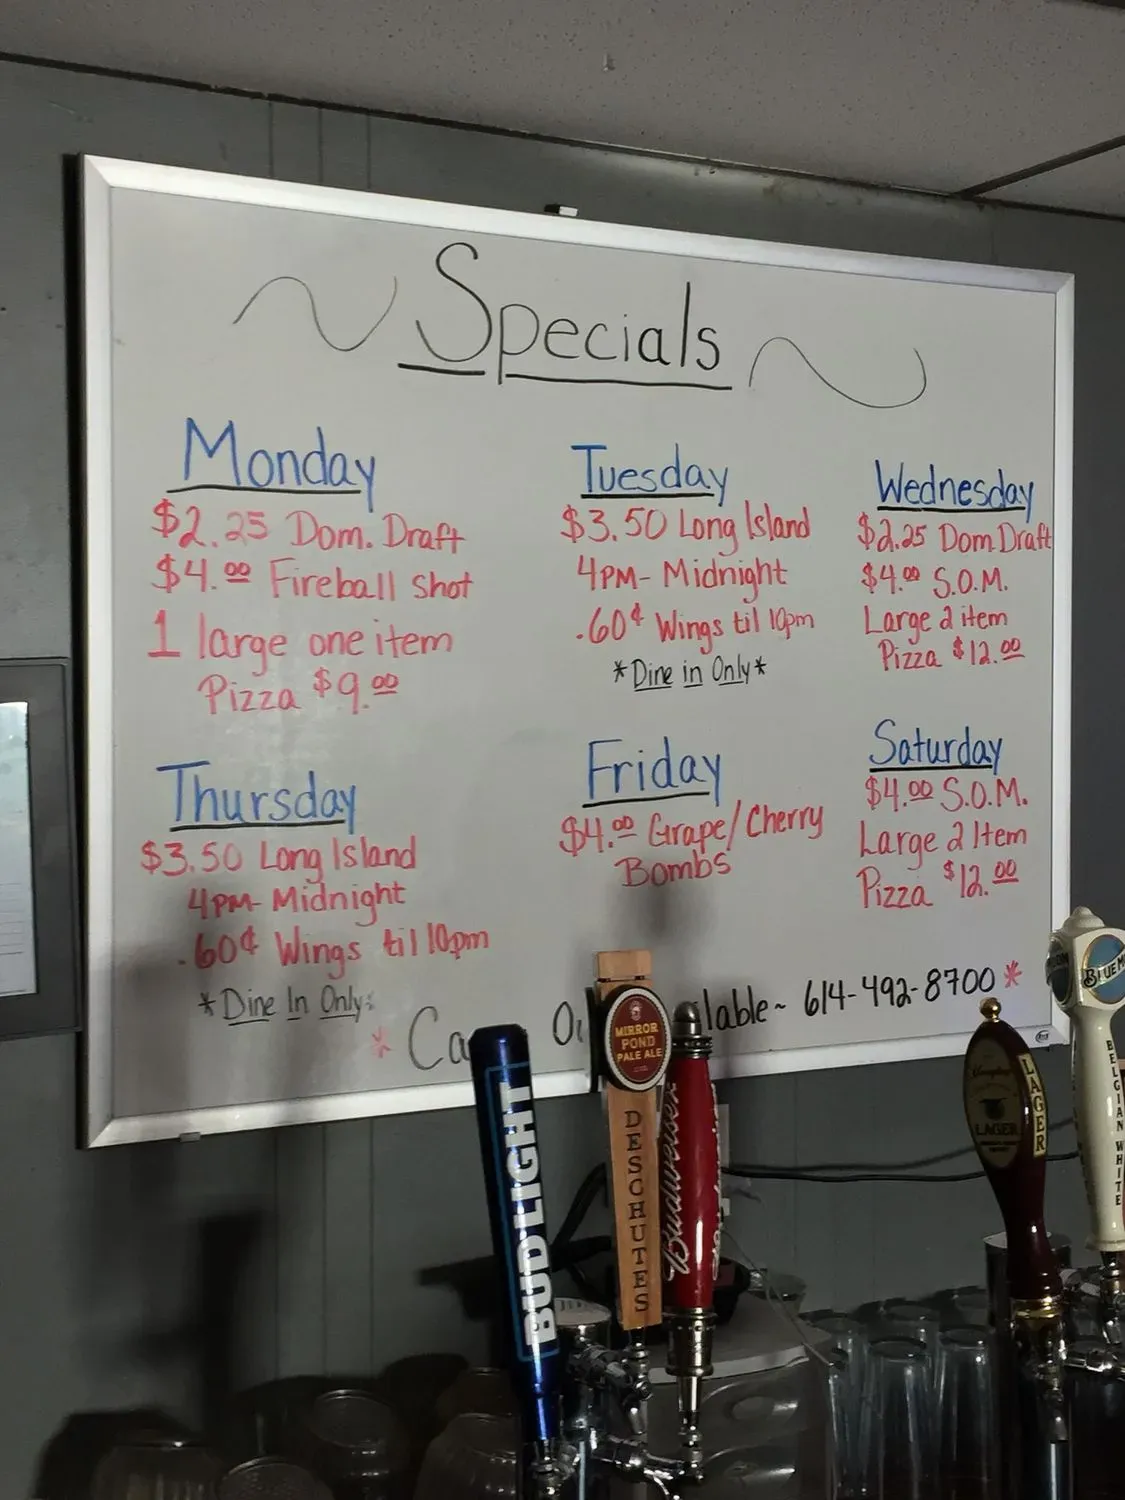 Specials
Monday
$2.25 Dom. Draft
$4.00 Fireball Shot
1 large one item
Pizza $9.00
Tuesday
$3.50 Long Island
4PM- Midnight
.60¢ Wings til 10pm
*Dine in Only*
Wednesday
$2.25 Dom Draft
$4.00 S.O.M.
Large 2 item
Pizza $12.00
Thursday
$3.50 Long Island
4PM- Midnight
.60¢ Wings til 10pm
*Dine In Only*
Friday
$4.00 Grape/Cherry
Bombs
Saturday
$4.00 S.O.M.
Large 2 Item
Pizza $12.00
* Ca Ou lable~ 614-492-8700 *
BUD LIGHT
MIRROR
POND
PALE ALE
DESCHUTES
Budweiser
LAGER
LAGER
BLUE M
BELGIAN WHITE